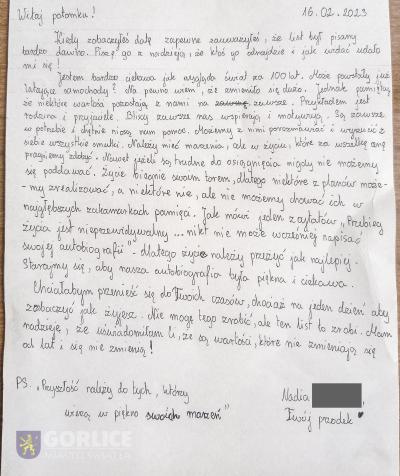 Witaj potomku!
16.02.2023
Kiedy zobaczyłeś datę zapewne zauważyłeś, że list był pisany
bardzo dawno. Piszę go z nadzieją, że ktoś go odnajdzie i jak widać udało
mi się!
Jestem bardzo ciekawa jak wygląda świat za 100 lat. Może powstały już
latające samochody? Na pewno wiem, że zmieniło się dużo. Jednak pamiętaj,
że niektóre wartości pozostają z nami na zawsze. Przykładem jest
rodzina i przyjaciele. Bliscy zawsze nas wspierają i motywują. Są zawsze
w potrzebie i chętnie niosą nam pomoc. Możemy z nimi porozmawiać i wyrzucić z
siebie wszystkie smutki. Należy mieć marzenia, ale w życiu, które za wszelką cenę
pragniemy zdobyć. Nawet jeżeli są trudne do osiągnięcia nigdy nie możemy
się poddawać. Życie biegnie swoim torem, dlatego niektóre z planów może-
-my zrealizować, a niektóre nie, ale nie możemy chować ich w
najgłębszych zakamarkach pamięci. Jak mówi jeden z cytatów „Przebieg
życia jest nieprzewidywalny... nikt nie może wcześniej napisać
swojej autobiografii" - dlatego życie należy przeżyć jak najlepiej.
Starajmy się, aby nasza autobiografia była piękna i ciekawa.
Chciałabym przenieść się do Twoich czasów, chociaż na jeden dzień aby
zobaczyć jak żyjesz. Nie mogę tego zrobić, ale ten list to zrobi. Mam
nadzieję, że uświadomiłam Ci, że są wartości, które nie zmieniają się
od lat i się nie zmienią!
PS. „Przyszłość należy do tych, którzy
wierzą w piękno swoich marzeń"
Nadia
Twój przodek
GORLICE
MIASTO ŚWIATŁA